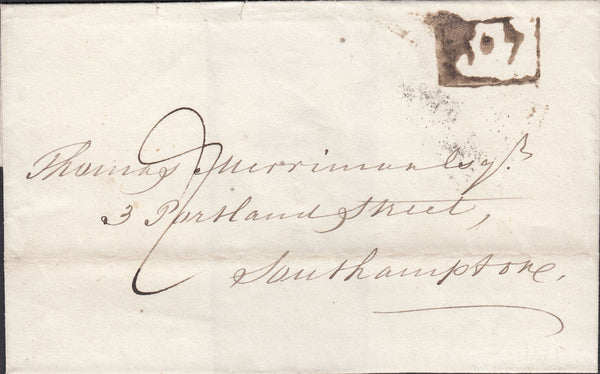 Thomas Merriman Esqr.
3 Portland Street,
Southampton.